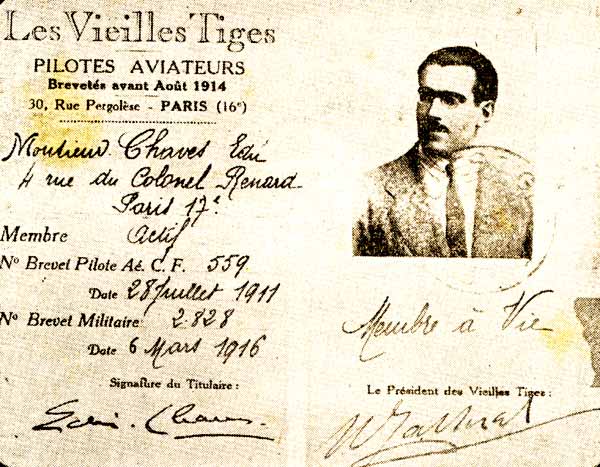 Les Vieilles Tiges
PILOTES AVIATEURS
Brevetés avant Août 1914
30, Rue Pergolèse - PARIS (16e)
Monsieur Chaves Edu
4 rue du Colonel Renard
Paris 17e
Membre actif
No Brevet Pilote Aé. C. F. 559
Date 28 Juillet 1911
No Brevet Militaire: 2.828
Date 6 Mars 1916
Signature du Titulaire:
Edu. Chaves
Membre à Vie
Le Président des Vieilles Tiges: